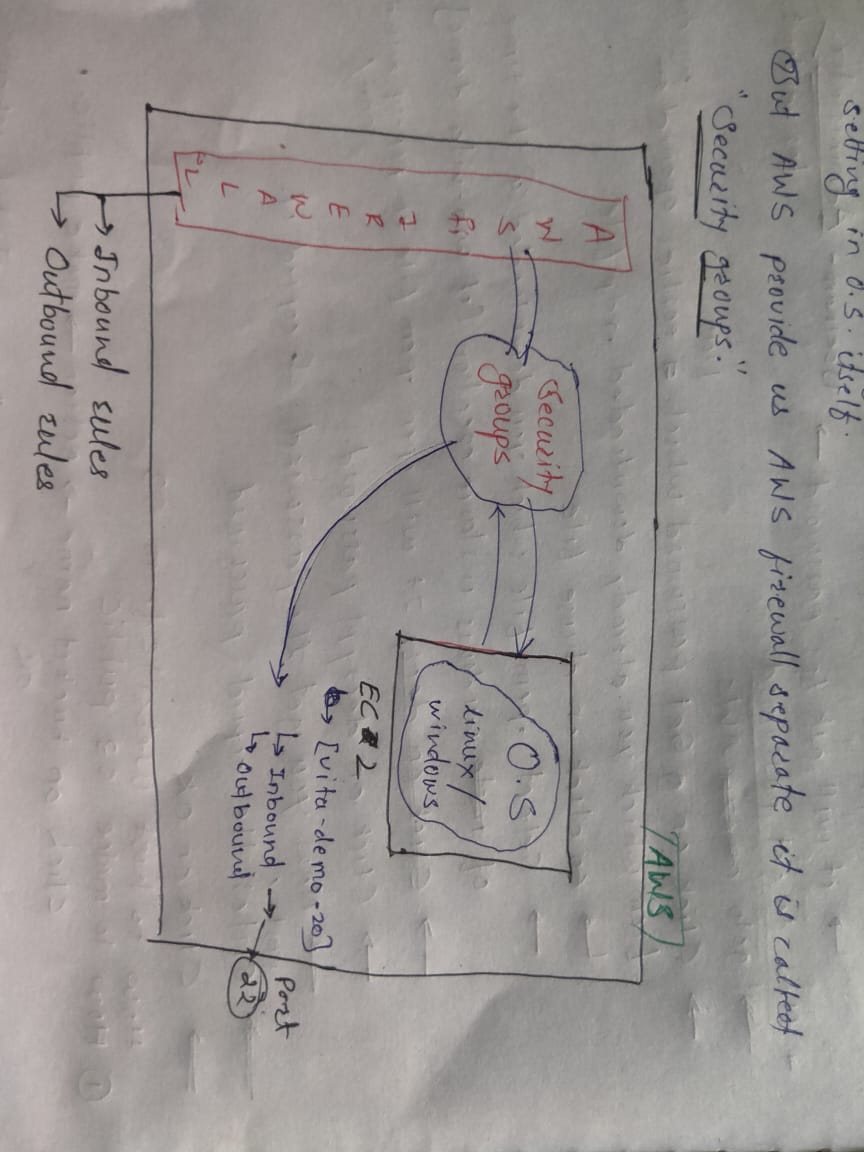 setting in O.S. itself.
But AWS provide us AWS firewall separate it is called
"Security groups."
/AWS/
AWS FIREWALL
Security
groups
O.S
Linux/
windows
EC2
[vita-demo-20]
Inbound → Port
22
outbound
→ Inbound rules
→ Outbound rules